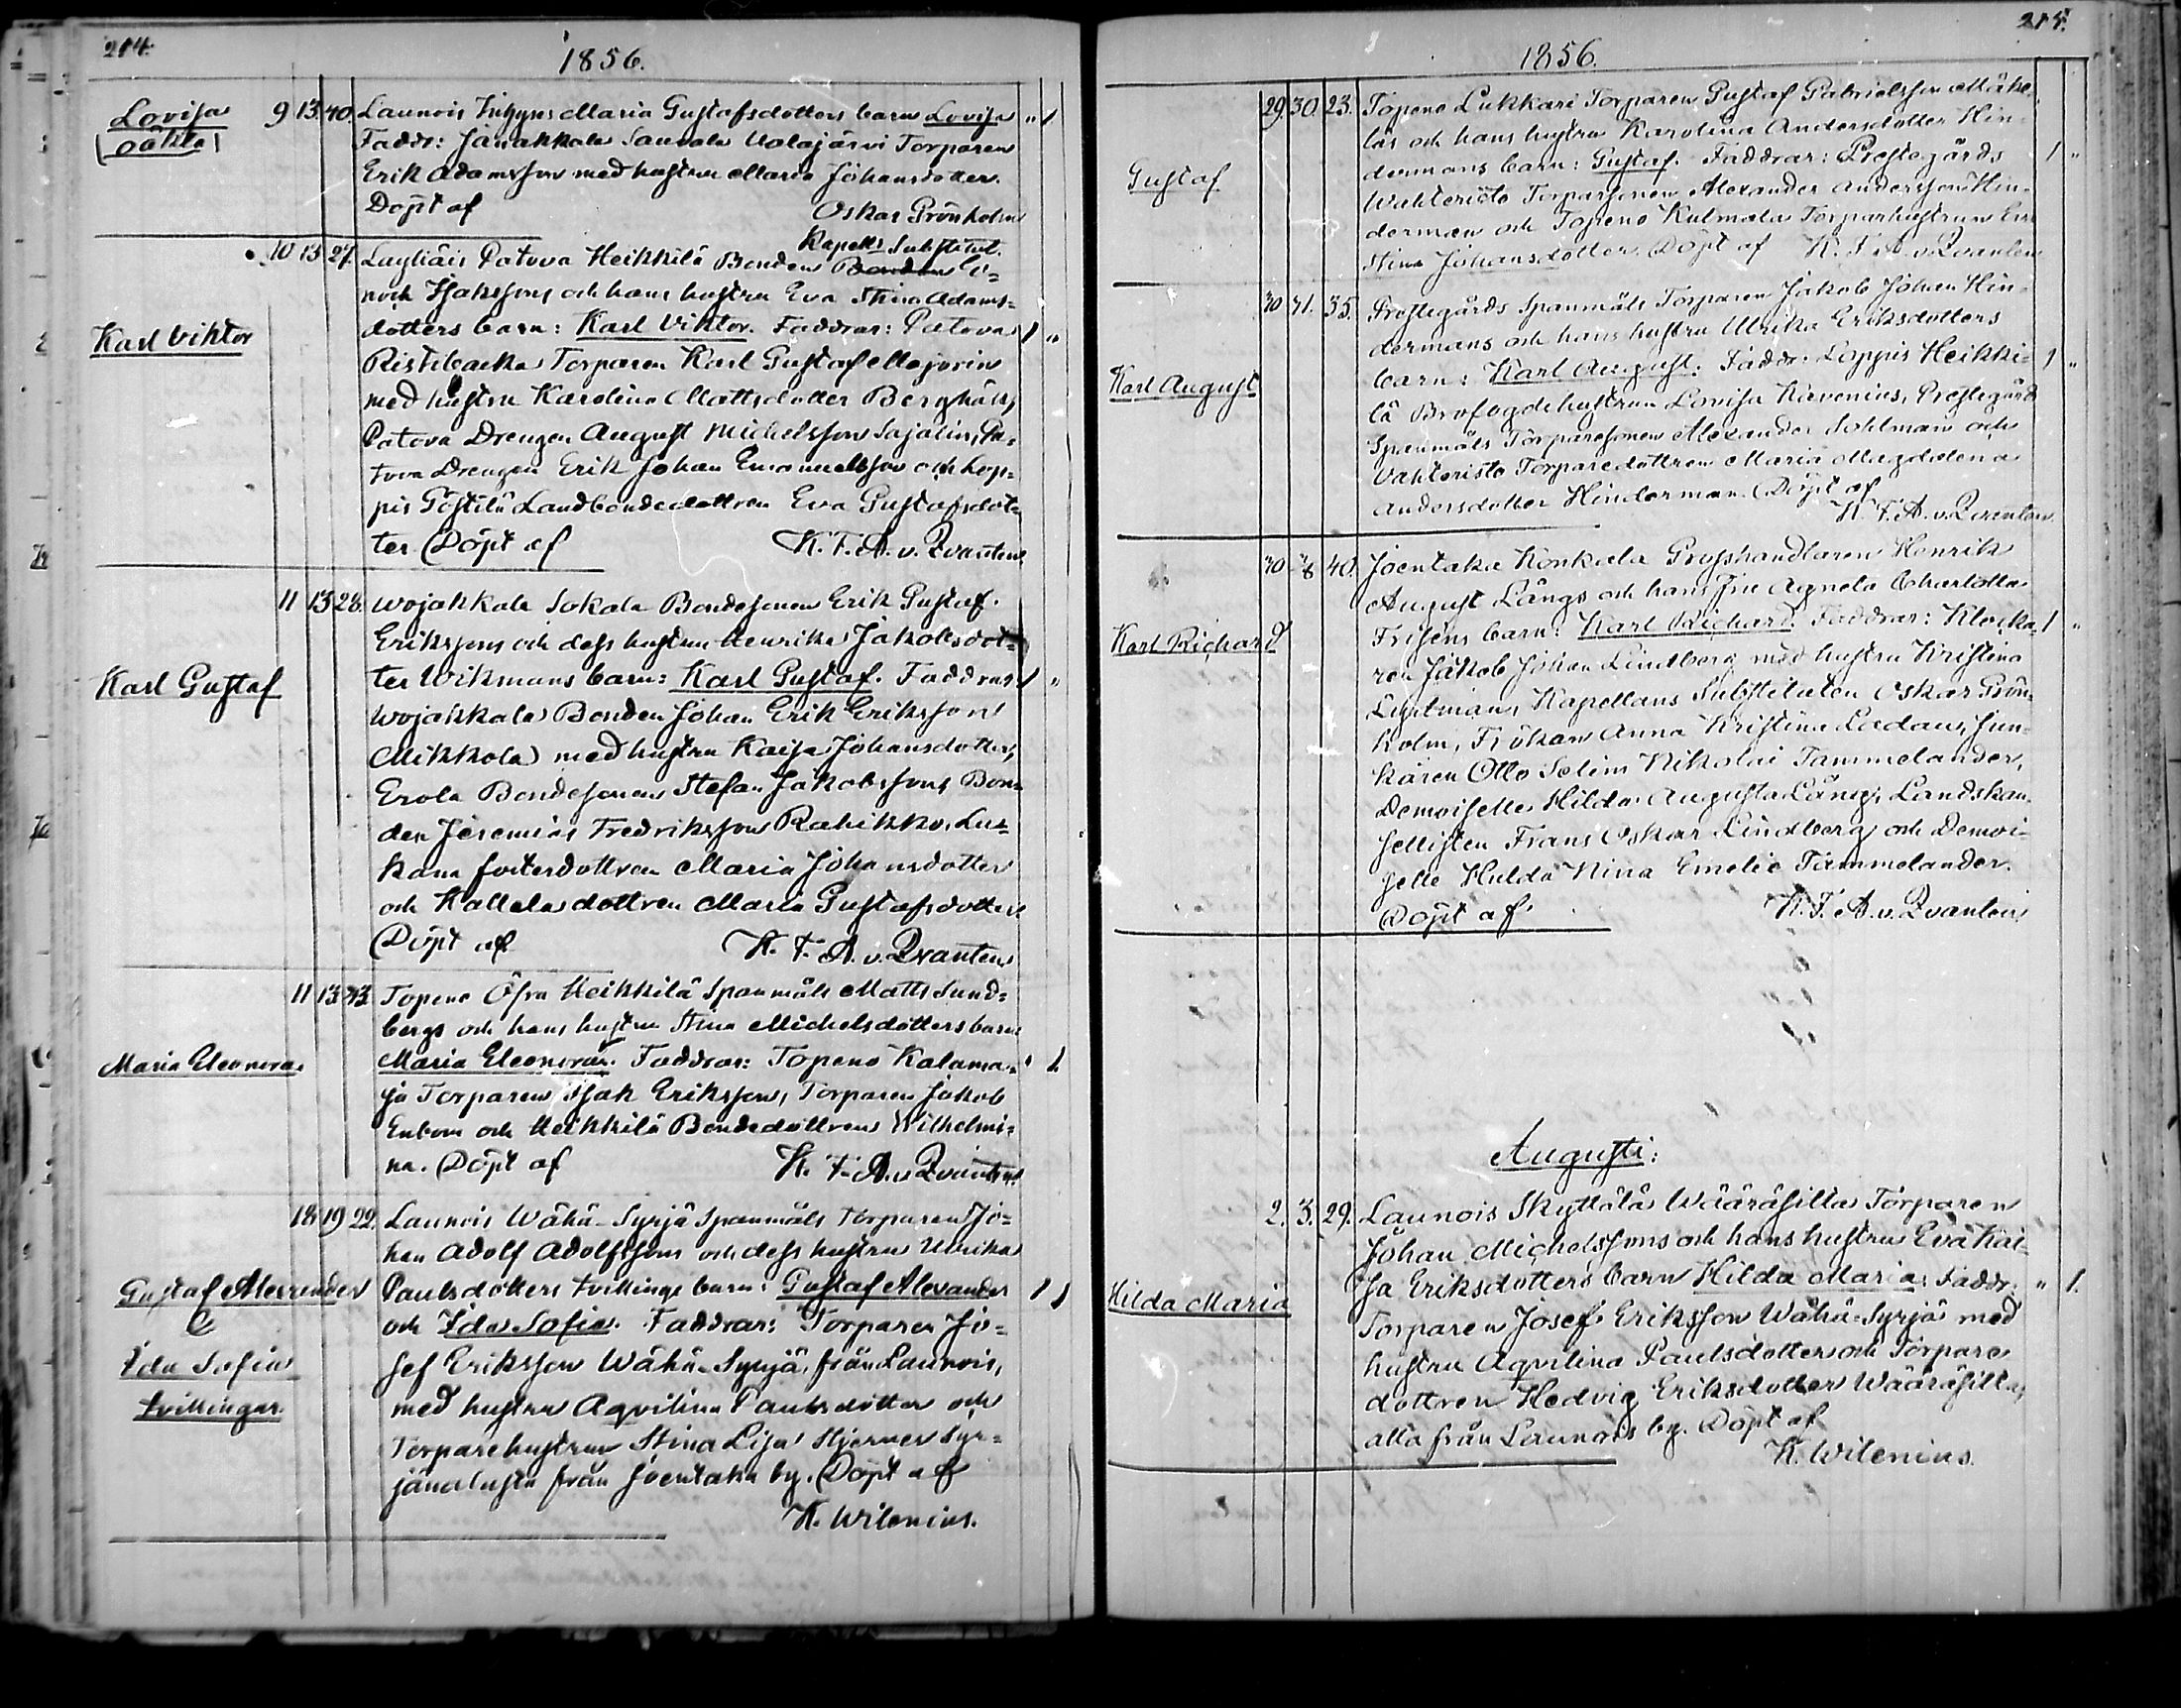 214.
1856.
Lovisa
oäkta
9 13. 40. Launois Inhyses Maria Gustafsdotters barn Lovisa " 1
Faddr: Janakkala Sauvala Valajärvi Torparen
Erik Adamsson med hustru Maria Johansdotter.
Döpt af Oskar Grönholm
Kapells Substitut.
Karl Viktor
10 13 27. Patova Heikkilä Bonden Bonden E=
noch Isakssons och hans hustru Eva Stina Adams=
dotters barn: Karl Viktor. Faddrar: Patova 1 "
Ristibacka Torparen Karl Gustaf Majorin
med hustru Karolina Mattsdotter Berghäll,
Patova Drengen August Michelsson Sajalin, Pa=
tova Drengen Erik Johan Emanuelsson och Lop=
pis Pöstilä Landbondedottren Eva Gustafsdot=
ter. Döpt af K. F. A. v. Qvanten
Karl Gustaf
11 13 28. Wojakkala Sokala Bondesonen Erik Gustaf
Erikssons och dess hustru Henrika Jakobsdot=
ter Wikmans barn: Karl Gustaf. Faddrar: 1 "
Wojakkala Bonden Johan Erik Eriksson
Mikkola med hustru Kaisa Johansdotter,
Erola Bondesonen Stefan Jakobsson, Bon=
den Jeremias Fredriksson Rahikko, Lus=
kana fosterdottren Maria Johansdotter
och Kallela dottren Maria Gustafsdotter
Döpt af K. F. A. v. Qvanten
Maria Eleonora
11 13 43. Topeno Öfra Heikkilä Spanmåls Matts Sund=
bergs och hans hustru Stina Michelsdotters barn
Maria Eleonora. Faddrar: Topeno Kalama= " 1.
ja Torparen Isak Eriksson, Torparen Jakob
Enbom och Heikkilä Bondedottren Wilhelmi=
na. Döpt af K. F. A. v. Qvanten
Gustaf Alexander
&
Ida Sofia
tvillingar.
18. 19 22. Launois Wähä-Syrjä Spanmåls Torparen Jo=
han Adolf Adolfssons och dess hustru Ulrika
Paulsdotters tvillinge barn: Gustaf Alexander 1 1
och Ida Sofia. Faddrar: Torparen Jo=
sef Eriksson Wähä-Syrjä, från Launois,
med hustru Aqvilina Paulsdotter och
Torparehustrun Stina Lisa Hjerner Syr=
jänalusta från Joentaka by. Döpt af
K. Wilenius.
215.
1856.
Gustaf
29. 30. 23. Topeno Lukkari Torparen Gustaf Gabrielsson
och hans hustru Karolina Andersdotter Hin=
dermans barn: Gustaf. Faddrar: Prostegårds 1 "
Wahteristo Torparsonen Alexander Andersson Hin=
derman och Topeno Kulmala Torparhustrun Ern
Stina Johansdotter. Döpt af K. F. A. v. Qvanten
Karl August
30 31. 35. Prostegårds Spanmåls Torparen Jakob Johan Hin=
dermans och hans hustru Ulrika Eriksdotters
barn: Karl August. Faddr: Loppis Heikki= 1 "
lä Brofogdehustrun Lovisa Kavenius, Prostegård
Spanmåls Torparesonen Alexander Sohlman och
Vahteristo Torparedottren Maria Magdalena
Andersdotter Hinderman. Döpt af
K. F. A. v. Qvanten
Karl Richard
30 8 40. Joentaka Konkala Grosshandlaren Henrik
August Långs och hans Fru Agneta Charlotta
Frisens barn: Karl Richard. Faddrar: Klocka= 1 "
ren Jakob Johan Lindberg med hustru Kristina
Kapellans Substituten Oskar Grön=
holm, Fröken Anna Kristina Ladau, Jun=
kären Otto Selim Nikolai Tammelander,
Demoiselle Hilda Augusta Lång, Landskan=
sellisten Frans Oskar Lindberg och Demoi=
selle Hulda Nina Emelie Tammelander.
Döpt af K. F. A. v. Qvanten
Augusti:
Hilda Maria
2. 3. 29. Launois Skyttälä Wääräsilla Torparen
Johan Michelssons och hans hustru Eva Kai=
sa Eriksdotters barn Hilda Maria: Faddr: " 1.
Torparen Josef Eriksson Wähä-Syrjä med
hustru Aqvilina Paulsdotter och Torpare
dottren Hedvig Eriksdotter Wääräsilla,
alla från Launois by. Döpt af
K. Wilenius.